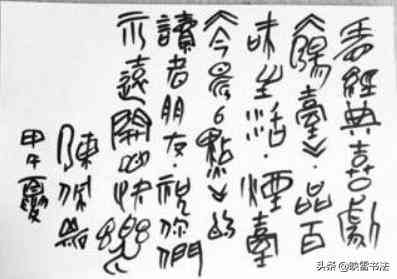 看經典喜劇
《陽臺》.品百
味生活.煙臺
《今晨6點》的
讀者朋友.祝你們
永遠開心快樂
陳佩斯
甲午夏
头条 @映雪书法